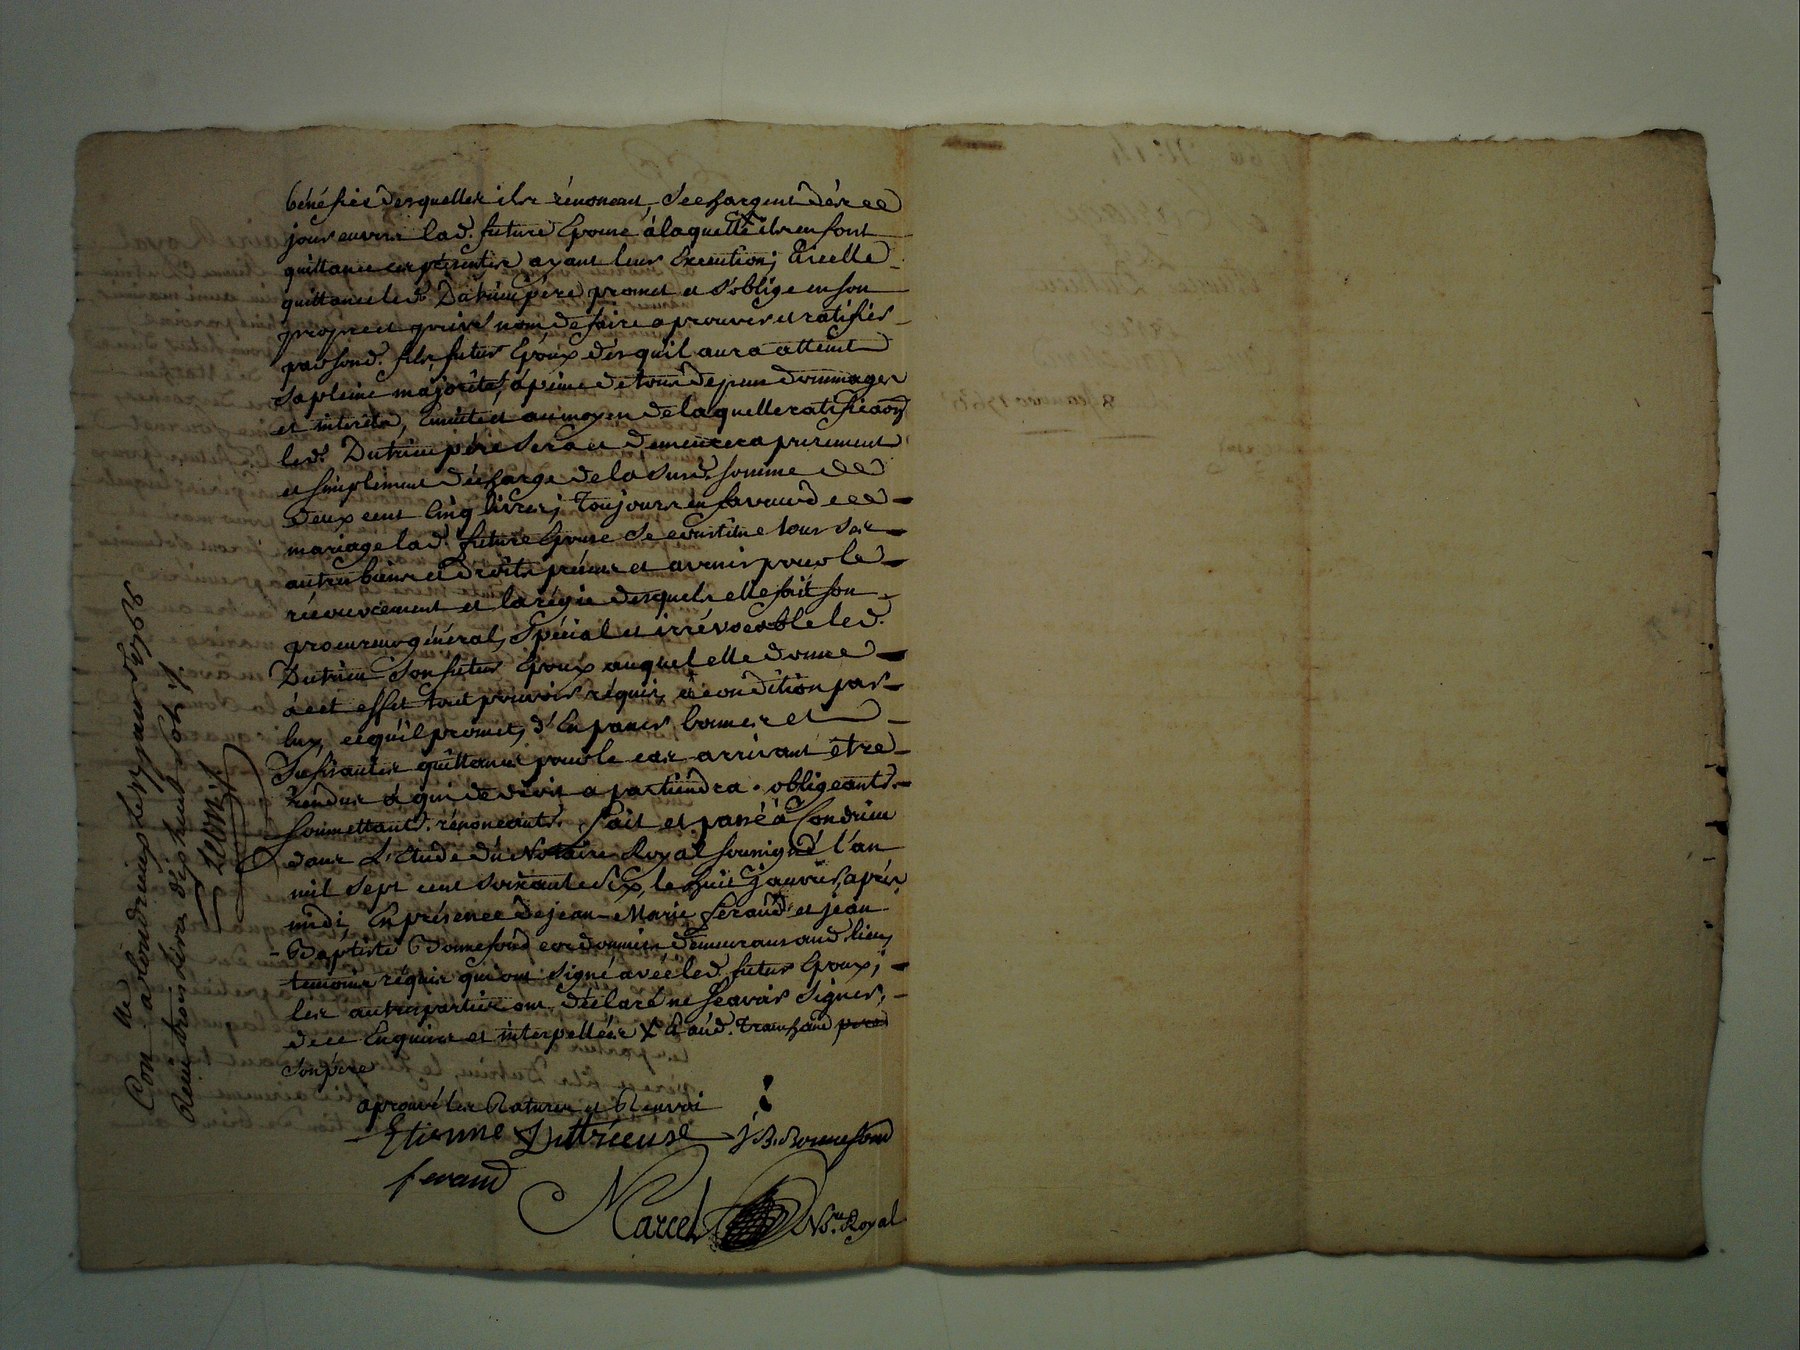 bénéfices desquelles ils rénoncent, se chargent dès ce
jour envers lad. future Epouse à laquelle ils en font
quittance ces présentes ayant leur Execution; Et icelle
quittance led. Dutrieu père promet et s'oblige en son
propre et privé nom de faire aprouver et ratifier
par sond. fils futur Epoux dès qu'il aura atteint
sa pleine majorité, à peine de tous dépens dommages
et interêts, Ensuite et au moyen de laquelle ratification
led. Dutrieu père sera et demeurera purement
et simplement déchargé de la susd. somme de
deux cent Cinq livres; Toujours en faveur de ce
mariage lad. future Epouse se constitue tous ses
autres biens et droits présens et avenir pour le
récouvrement et la régie desquels elle fait son
procureur général, spécial et irrévocable led.
Dutrieu son futur Epoux auquel elle donne
à cet effet tout pouvoir réquis, à condition par
luy, ce qu'il promet, d'En passer bonnes et
sufisantes quittances pour le cas arrivant être
rendues à qui de droit apartiendra. obligeants.
soumettants. rénonceants. Fait et passé à Condrieu
dans L'Etude du Notaire Royal soussigné l'an
mil sept cent soixante Six, le huit Janvier, après
midi, En présence de jean-Marie feraud et jean
-Baptiste Bonnefond cordonnier demeurans aud. lieu,
temoins réquis qui ont signé avec led. futur Epoux;
les autres parties ont déclaré ne sçavoir signer,
de ce Enquises et interpellées X Et aud. Tranchand pere
son pere
aprouvé les Ratures et Renvoi
Etienne Duttrieuse J B. Bonnefond
feraud
Marcel No.re Royal
Con.lle a Condrieux Le 17 janv. 1766
Reçu trois livres dix huit sols